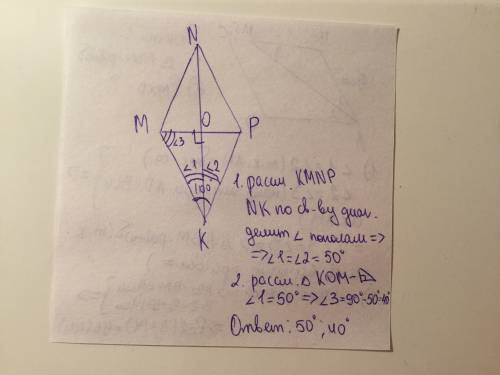 N
M
O
P
∠3
∠1 ∠2
100°
K
1. рассм. KMNP
NK по св-ву диаг.
делит ∠ пополам =>
=> ∠1 = ∠2 = 50°
2. рассм. Δ KOM - 
∠1 = 50° => ∠3 = 90°-50°=40°
Ответ: 50°; 40°